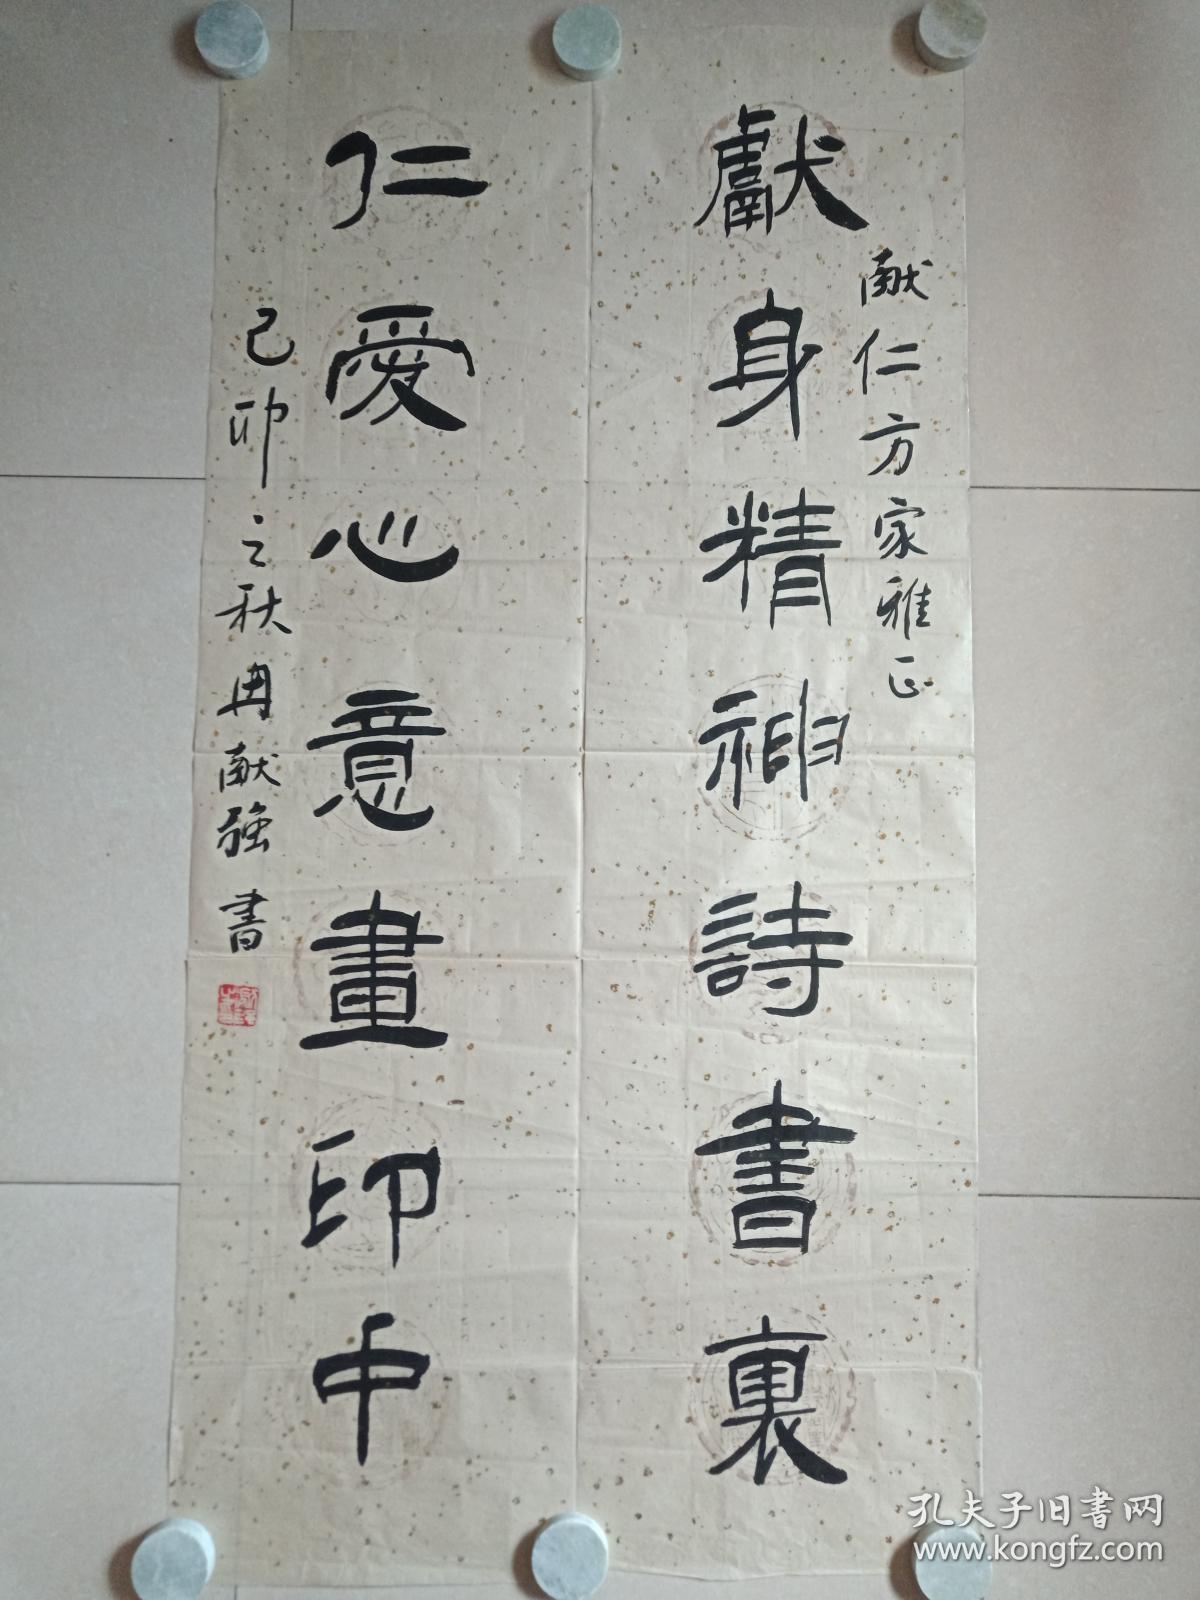 献仁方家雅正
獻身精神詩書裏
仁愛心意畫印中
己卯之秋冉献强書
孔夫子旧书网
www.kongfz.com